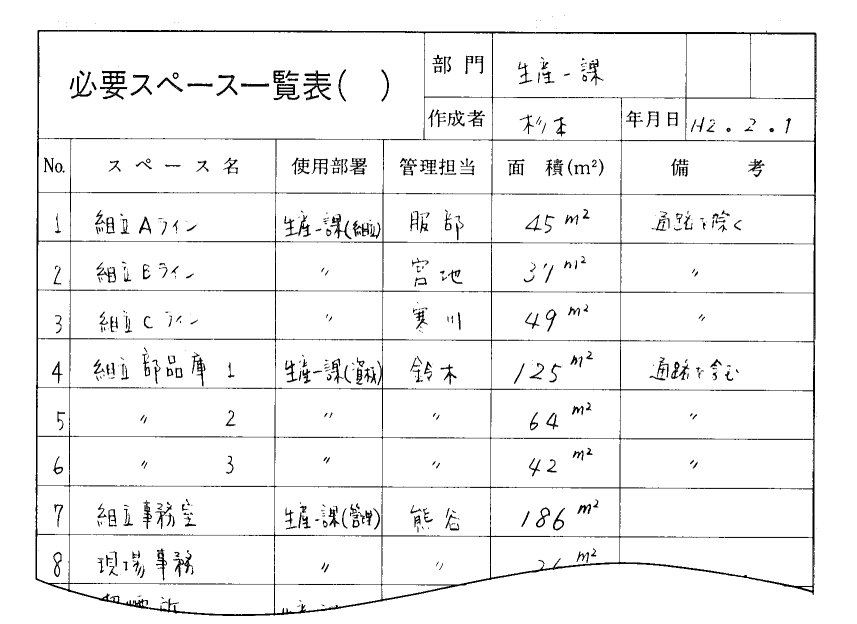 必要スペース一覧表( )
部門 生産一課
作成者 杉本 年月日 H2.2.1
No. スペース名 使用部署 管理担当 面 積(m²) 備 考
1 組立Aライン 生産一課(組立) 服部 45 m² 通路を除く
2 組立Bライン 〃 宮地 37 m² 〃
3 組立Cライン 〃 寒川 49 m² 〃
4 組立部品庫 1 生産一課(資材) 鈴木 125 m² 通路を含む
5 〃 2 〃 〃 64 m² 〃
6 〃 3 〃 〃 42 m² 〃
7 組立事務室 生産一課(管理) 熊谷 186 m²
8 現場事務 〃 〃 m²